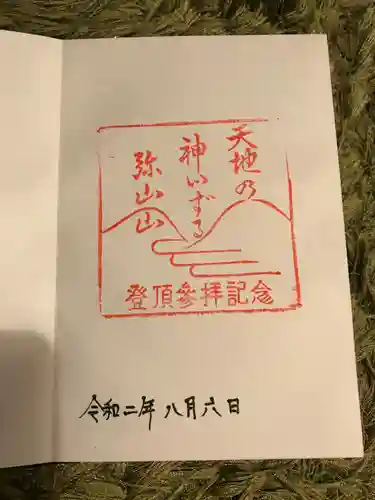 天地の
神いずる
弥山山
登頂參拝記念
令和二年八月六日